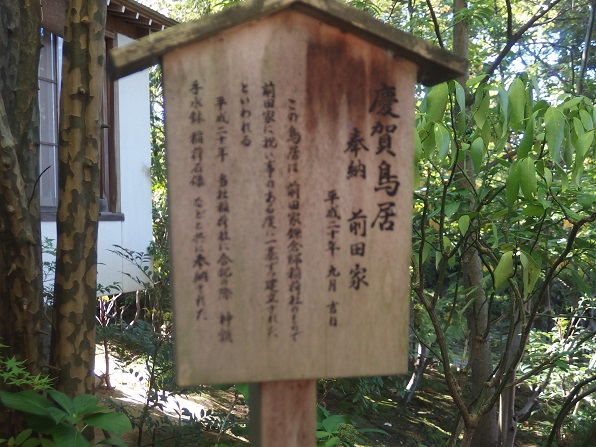 慶賀鳥居
奉納 前田家
平成二十年 九月 吉日
この鳥居は、前田家鎌倉稲荷社のもので
前田家に祝い事のある度に一基ずつ建立された
といわれる
平成二十年 当社稲荷社に合祀の際 神鏡
手水鉢 稲荷石様 などと共に奉納された